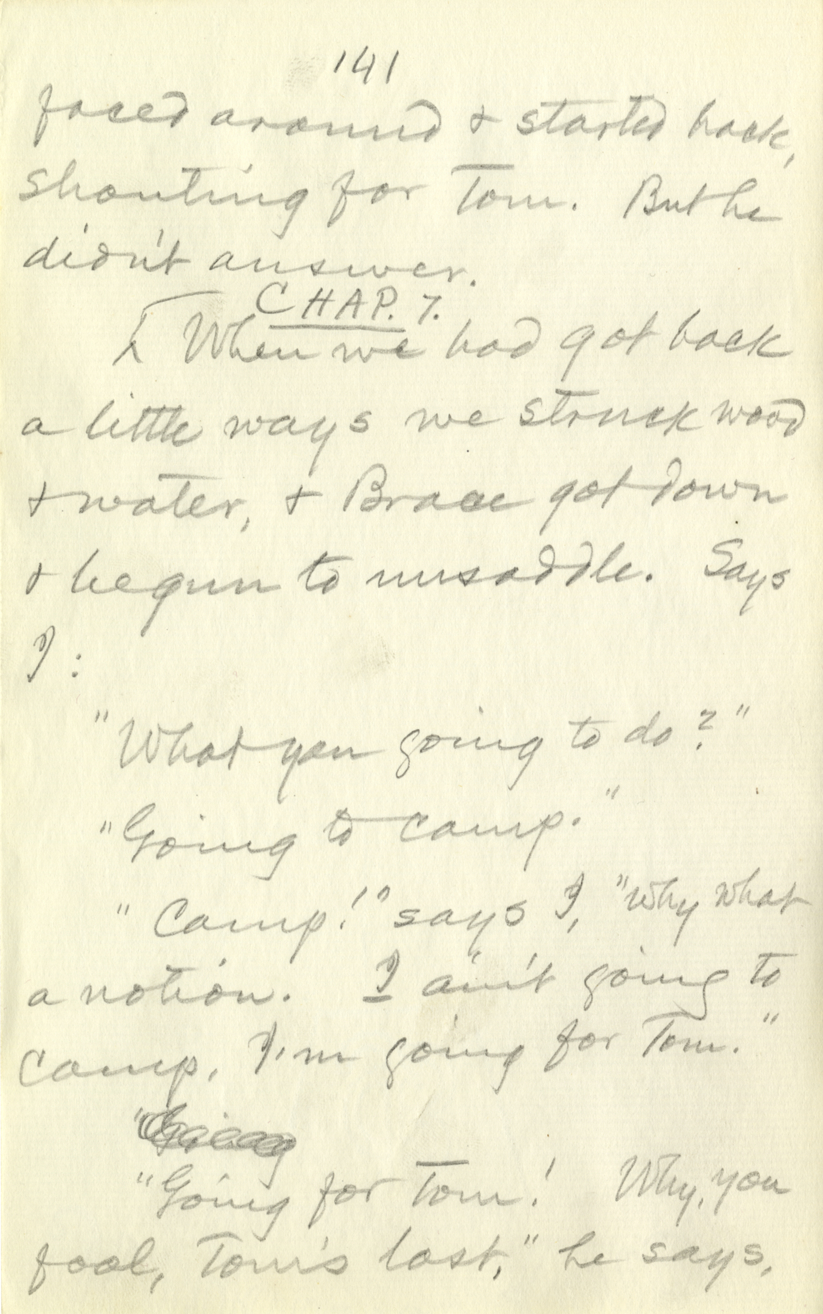 141
faced around & started back,
shouting for Tom. But he
didn't answer.
CHAP. 7.
When we had got back
a little ways we struck wood
& water, & Brace got down
& begun to unsaddle. Says
I:
"What you going to do?"
"Going to camp."
"Camp!" says I, "Why what
a notion. I ain't going to
camp, I'm going for Tom."
"Going for Tom! Why, you
fool, Tom's lost," he says.